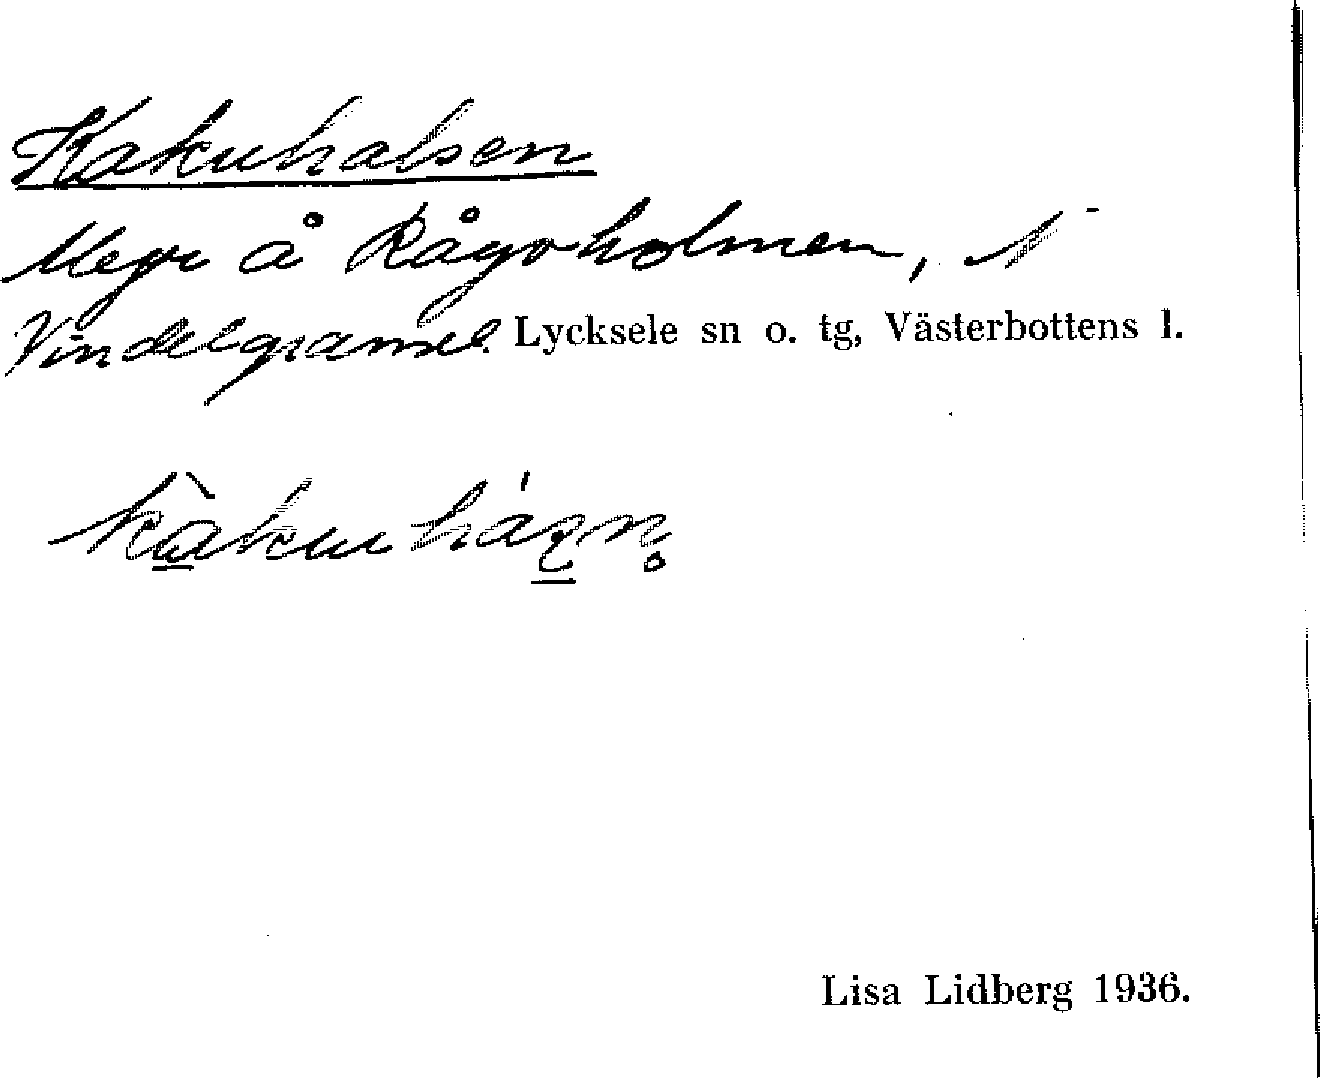 Kakuhalsen
å Rågoholmen, i
Vindelgransel. Lycksele sn o. tg, Västerbottens l.
Lisa Lidberg 1936.